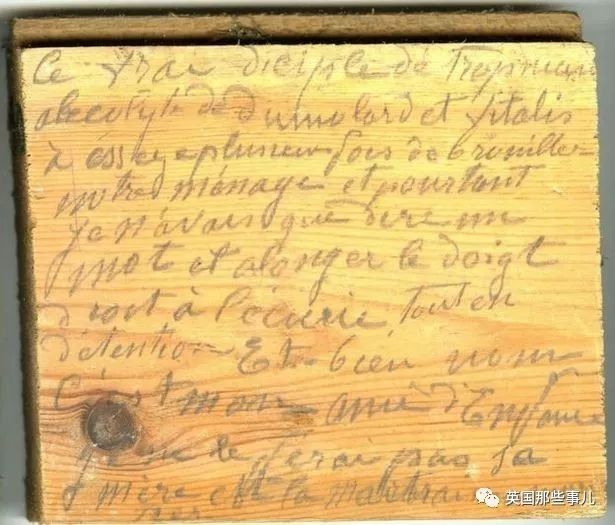 Ce vrai diciple de Tropmann
acco​lyte de Dumolard et Vitalis
à éssaye plusieur fois de brouiller
notre ménage et pourtant
je n'avais que dire un
mot et alonger le doigt
droit à l'écurie tout en
détention Et bien non
C'est mon ami d'Enfance
je ne le ferai pas sa
mère est la maitraisse
英国那些事儿